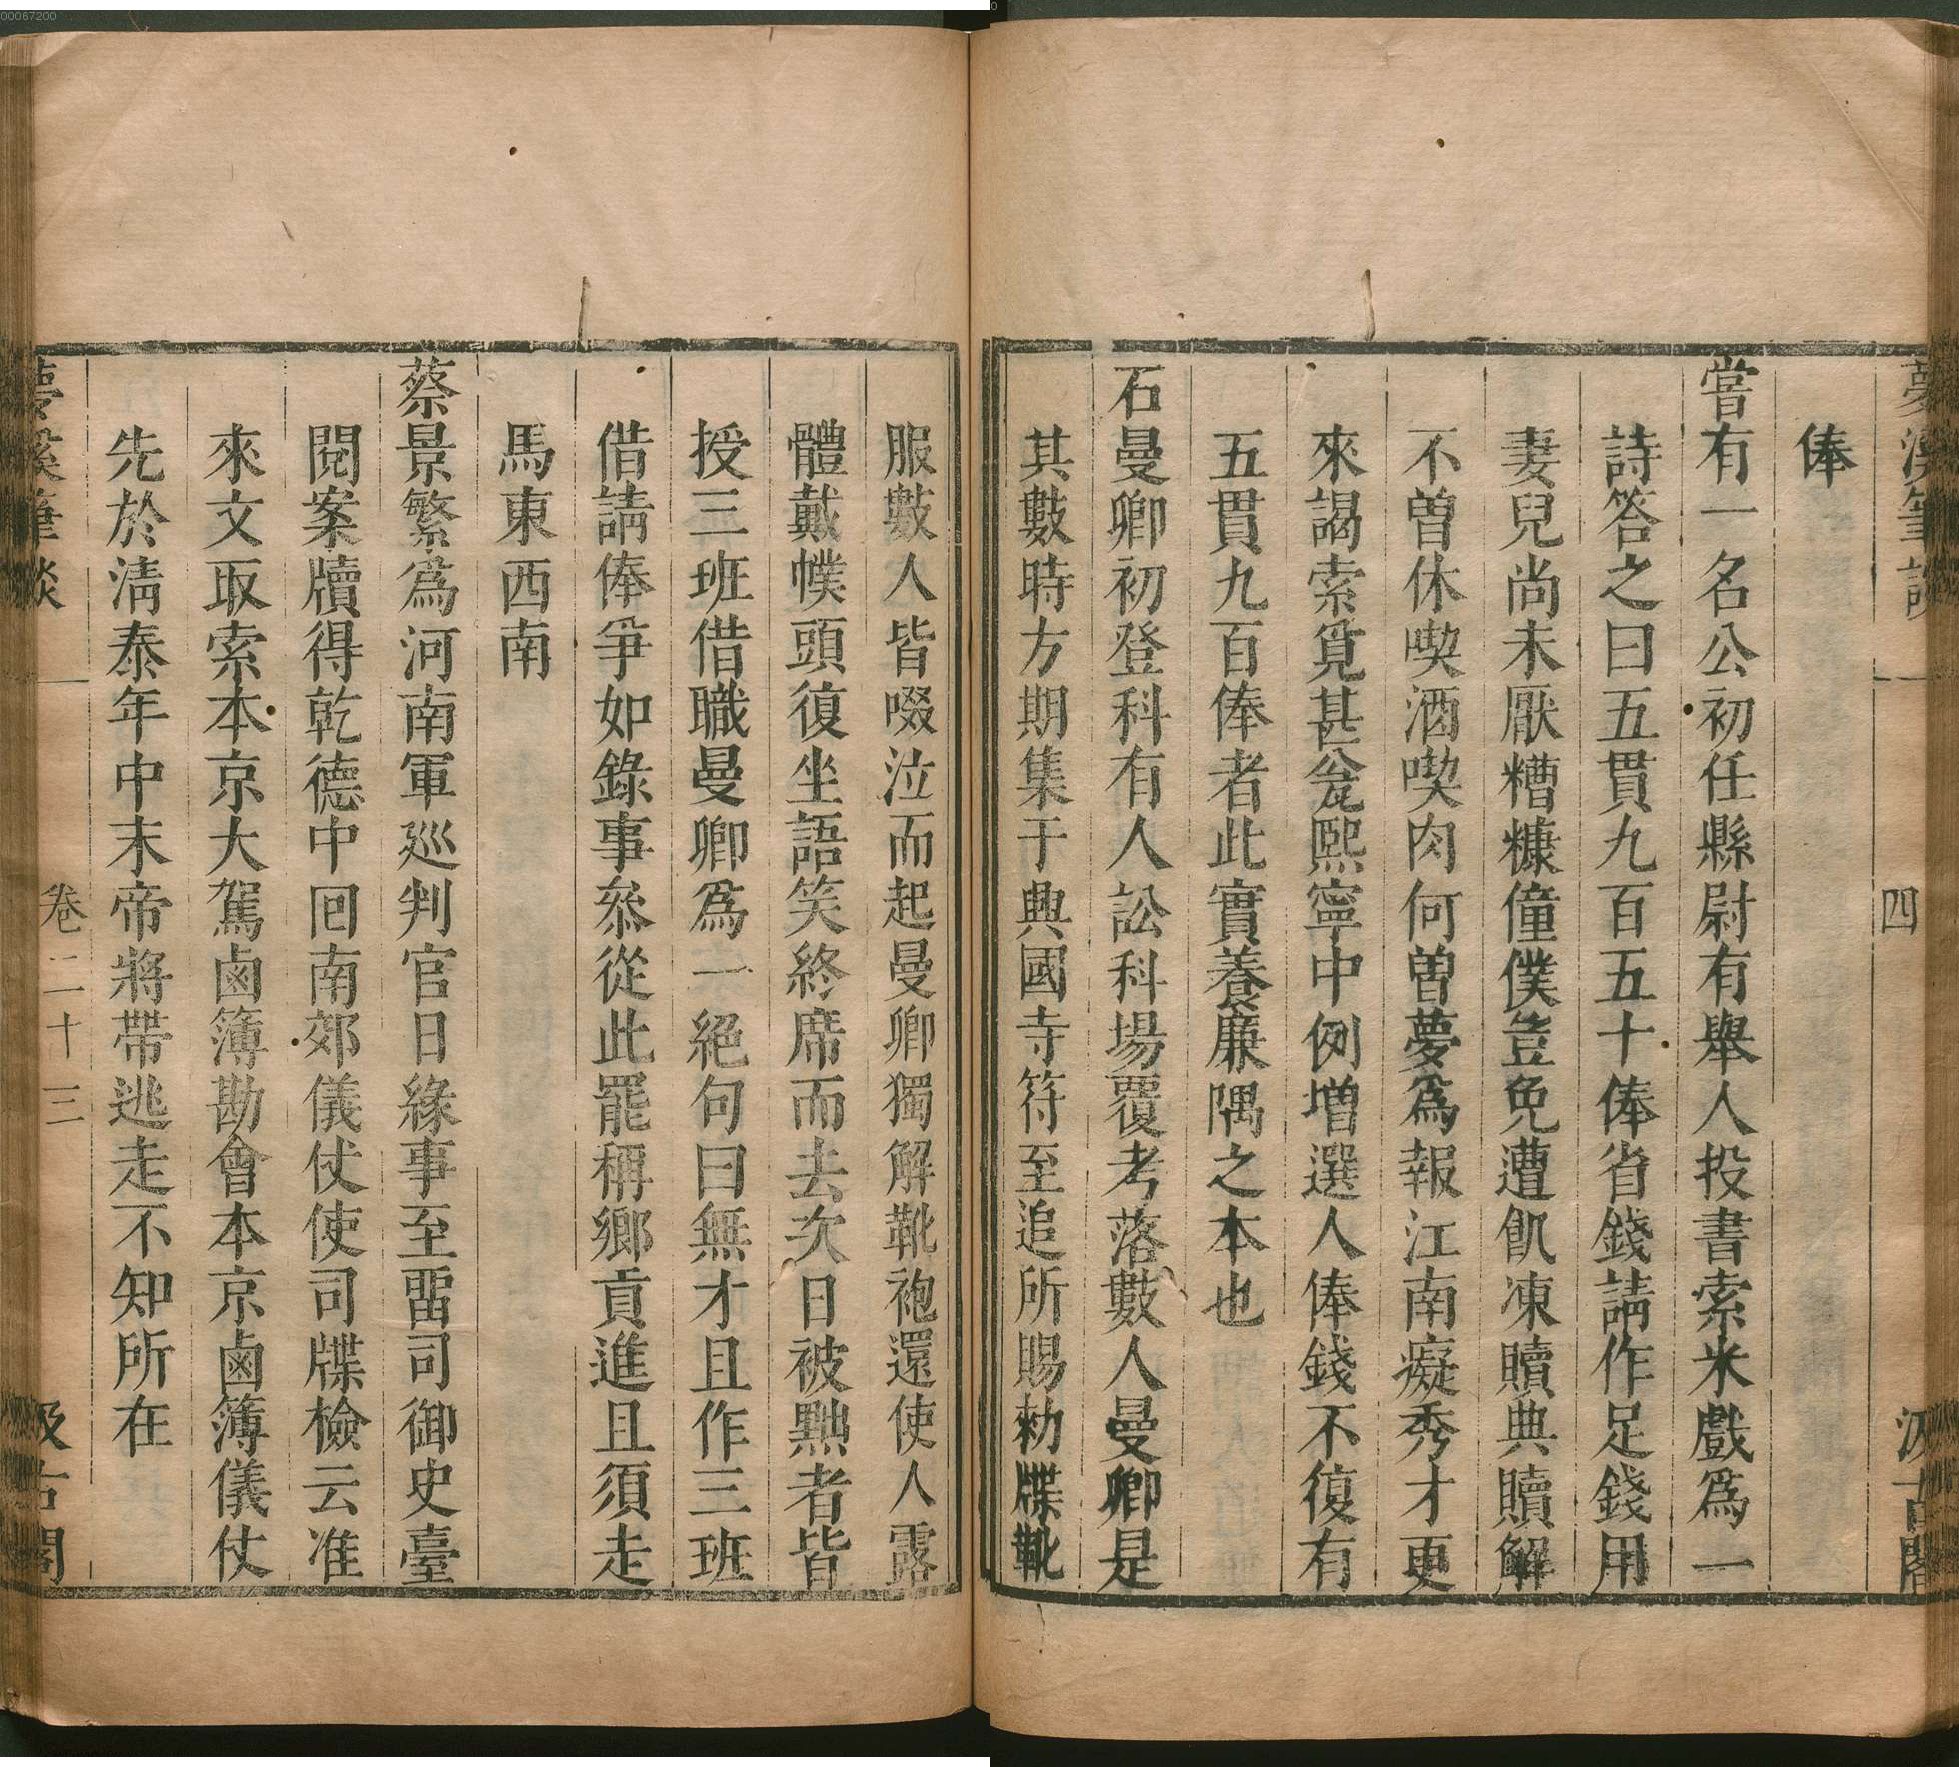 夢溪筆談
四
汲古閣
俸
嘗有一名公初任縣尉有舉人投書索米戲為一
詩答之曰五貫九百五十俸省錢請作足錢用
妻兒尚未厭糟糠僮僕豈免遭飢凍贖典贖解
不曾休喫酒喫肉何曾夢為報江南癡秀才更
來謁索覓甚瓮熙寧中例增選人俸錢不復有
五貫九百俸者此實養廉隅之本也
石曼卿初登科有人訟科場覆考落數人曼卿是
其數時方期集于興國寺符至追所賜勑牒靴
服數人皆啜泣而起曼卿獨解靴袍還使人露
體戴幞頭復坐語笑終席而去次日被黜者皆
授三班借職曼卿爲一絕句曰無才且作三班
借請俸爭如錄事叅從此罷稱鄉貢進且須走
馬東西南
蔡景繁爲河南軍巡判官日緣事至畱司御史臺
閱案牘得乾德中回南郊儀仗使司牒檢云准
來文取索本京大駕鹵簿勘會本京鹵簿儀仗
先於淸泰年中末帝將帶逃走不知所在
夢溪筆談
卷二十三
汲古閣
00067200